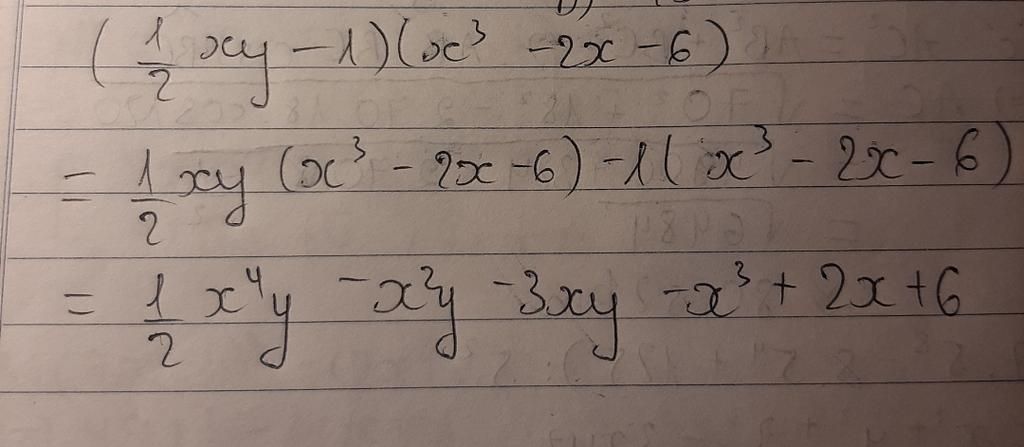 (1/2 xy - 1)(x³ - 2x - 6)
= 1/2 xy (x³ - 2x - 6) - 1(x³ - 2x - 6)
= 1/2 x⁴y - x²y - 3xy - x³ + 2x + 6